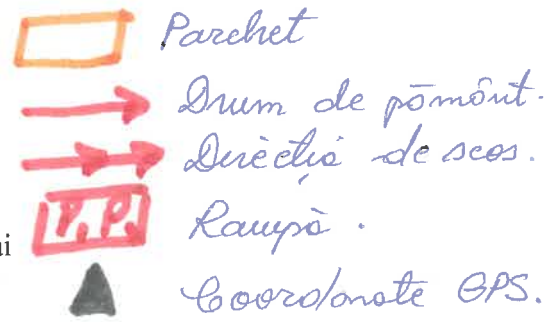 Parchet
Drum de pământ.
Direcția de scos.
P.P. Rampă.
Coordonate GPS.